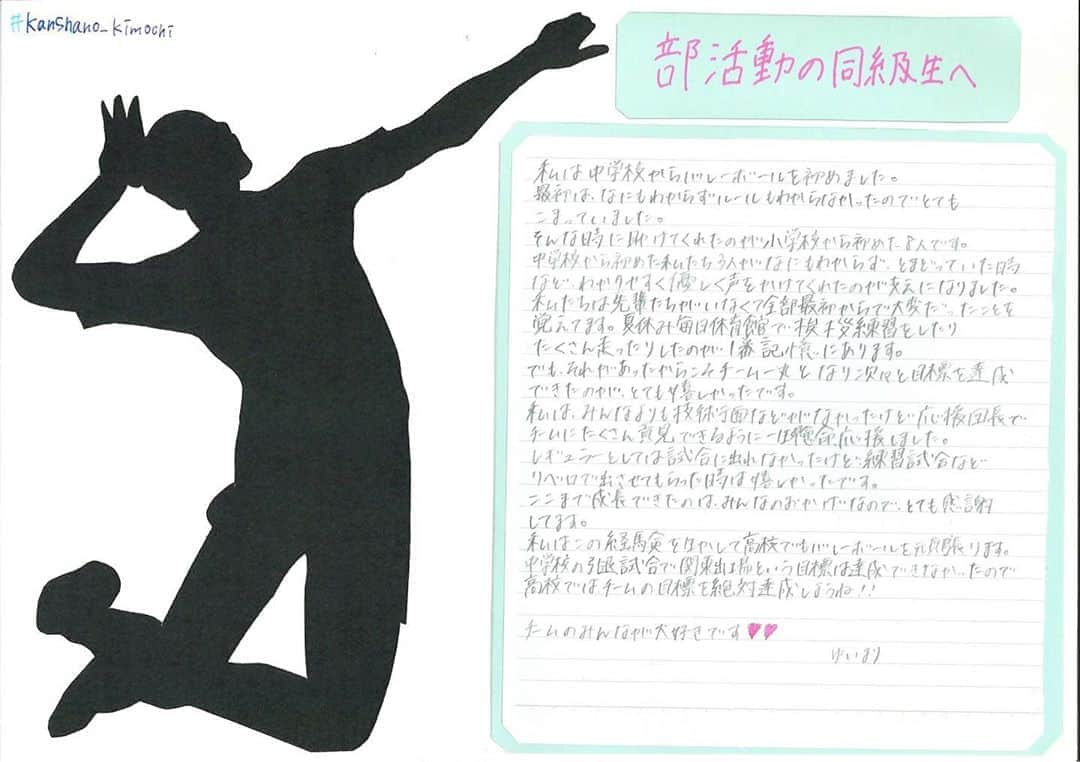 #kanshano_kimochi
部活動の同級生へ
私は中学校からバレーボールを初めました。
最初は、なにもわからずルールもわからなかったのでとても
こまっていました。
そんな時に助けてくれたのが小学校から初めた8人です。
中学校から初めた私たち3人がなにもわからず、とまどっていた時
など、わかりやすく優しく声をかけてくれたのが支えになりました。
私たちは先輩たちがいなくて全部最初からで大変だったことを
覚えてます。夏休み毎日体育館で挨拶練習をしたり
たくさん走ったりしたのが1番記憶にあります。
でも、それがあったからこそチーム一丸となり次々と目標を達成
できたのが、とても嬉しかったです。
私は、みんなよりも技術面などがなかったけど応援団長で
チームにたくさん貢献できるように一生懸命応援しました。
レギュラーとしては試合に出れなかったけど練習試合など
リベロで出させてもらった時は嬉しかったです。
ここまで成長できたのは、みんなのおかげなので、とても感謝
してます。
私はこの経験を生かして高校でもバレーボールを頑張ります。
中学校の引退試合で関東出場という目標は達成できなかったので
高校ではチームの目標を絶対達成しようね!!
チームのみんなが大好きです♥♥